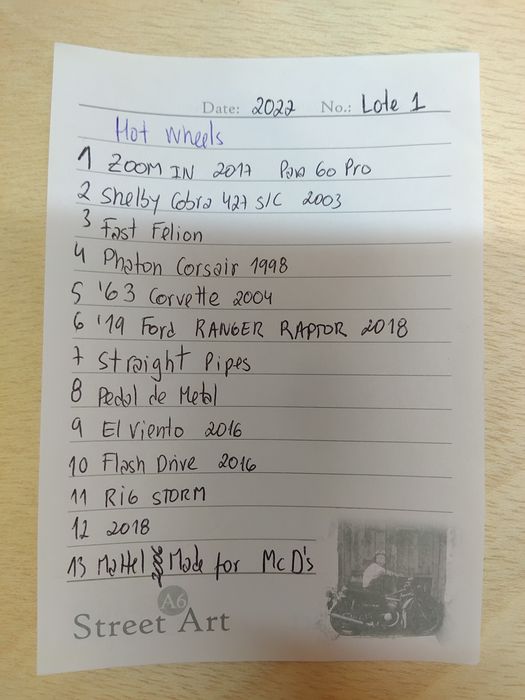 Date: 2022 No.: Lote 1
Hot wheels
1 ZOOM IN 2017 Para Go Pro
2 Shelby Cobra 427 S/C 2003
3 Fast Felion
4 Photon Corsair 1998
5 '63 Corvette 2004
6 '19 Ford RANGER RAPTOR 2018
7 Straight Pipes
8 Pedal de Metal
9 El Viento 2016
10 Flash Drive 2016
11 RIG STORM
12 2018
13 Mattel Made for McD's
A6
Street Art